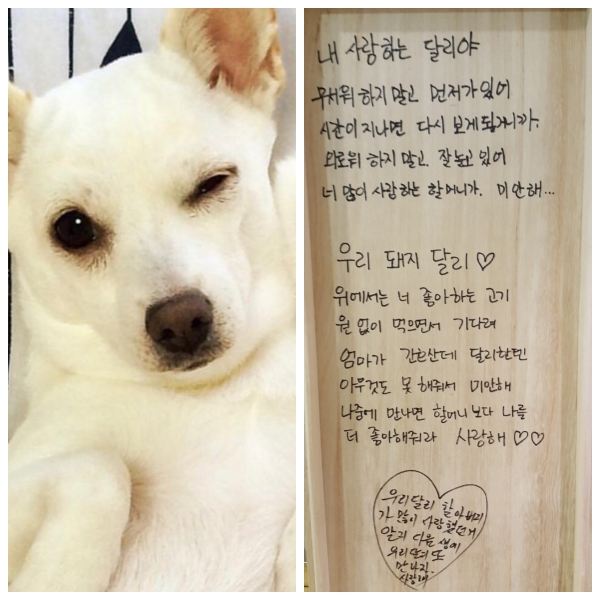 내 사랑하는 달리야
무서워 하지 말고 먼저 가 있어
시간이 지나면 다시 보게 될거니까.
외로워 하지 말고. 잘 놀고 있어
너 많이 사랑하는 할머니가. 미안해...
우리 돼지 달리♡
위에서는 너 좋아하는 고기
원 없이 먹으면서 기다려
엄마가 간호산데 달리한텐
아무것도 못 해줘서 미안해
나중에 만나면 할머니보다 나를
더 좋아해줘라 사랑해♡♡
우리달리 할아버지
가 많이 사랑했던거
알지 다음 생에
우리 또
만나자.
사랑해